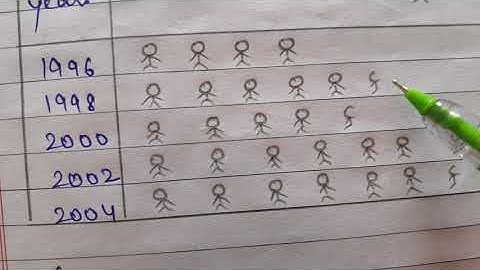 Years
1996
1998
2000
2002
2004